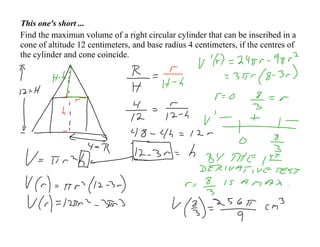 This one's short ...
Find the maximun volume of a right circular cylinder that can be inscribed in a
cone of altitude 12 centimeters, and base radius 4 centimeters, if the centres of
the cylinder and cone coincide.
H-h
12=H
r
h
4=R
R/H = r/H-h
4/12 = r/12-h
48-4h = 12r
12-3r = h
V = πr²h
V(r) = πr²(12-3r)
V(r) = 12πr² - 3πr³
V'(r) = 24πr - 9πr²
= 3πr(8-3r)
r=0 8/3 = r
V' - + -
0 8/3
BY THE 1ST
DERIVATIVE TEST
r = 8/3 IS A MAX.
V(8/3) = 256π/9 cm³